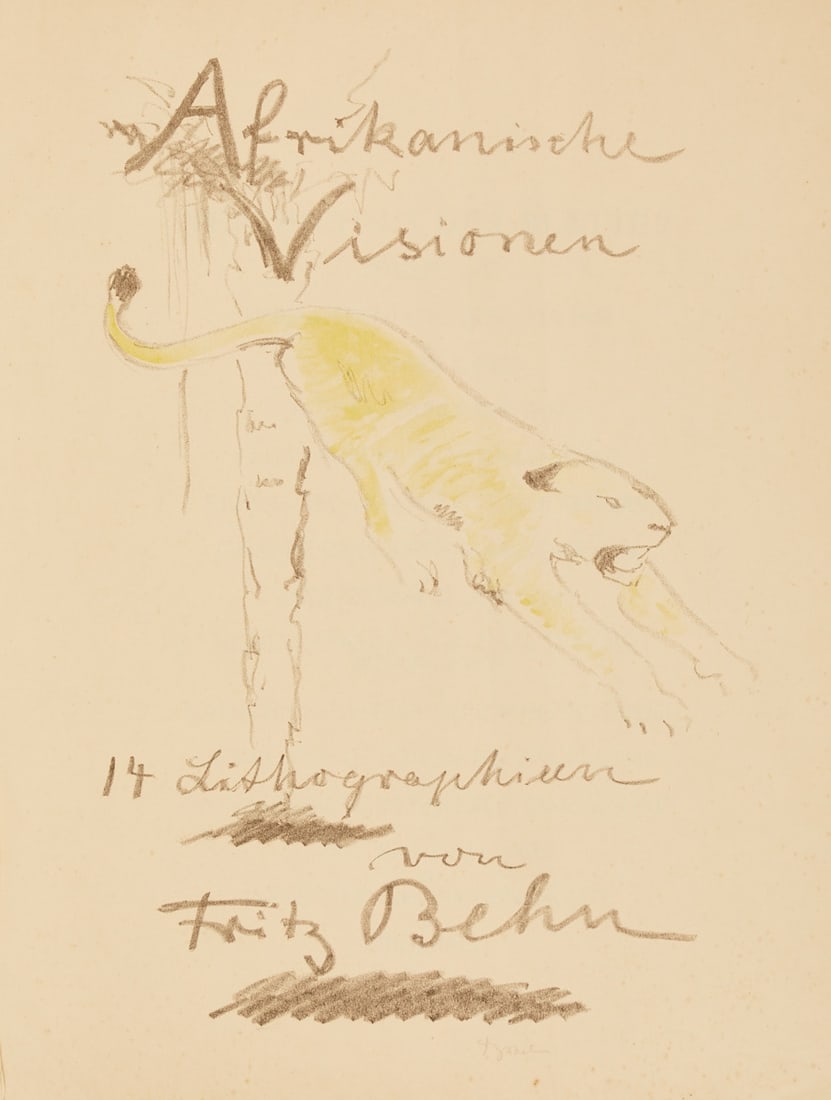 Afrikanische
Visionen
14 Lithographieen
von
Fritz Behn